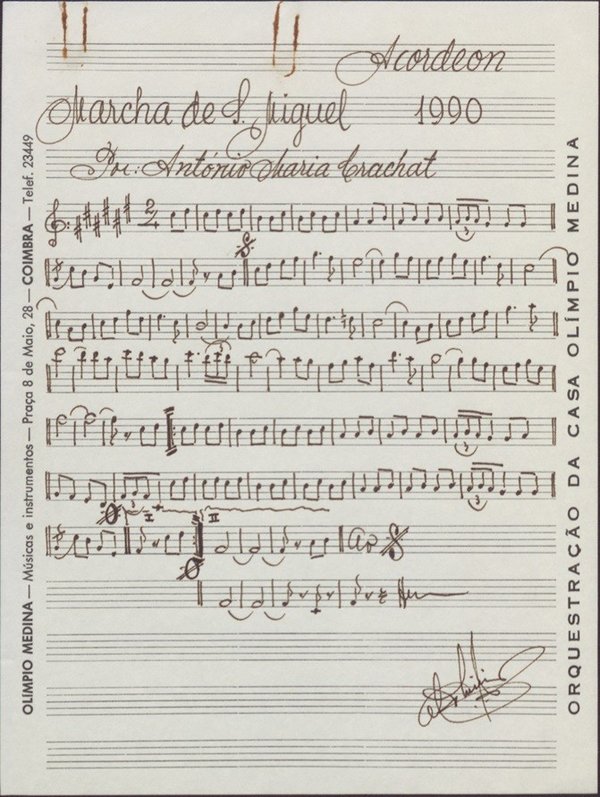 Acordeon
Marcha de S. Miguel 1990
Por: António Maria Crachat
2/4
3
3
3
3
I II
Ao
Fim
OLÍMPIO MEDINA — Músicas e instrumentos — Praça 8 de Maio, 28 — COIMBRA — Telef. 23449
ORQUESTRAÇÃO DA CASA OLÍMPIO MEDINA